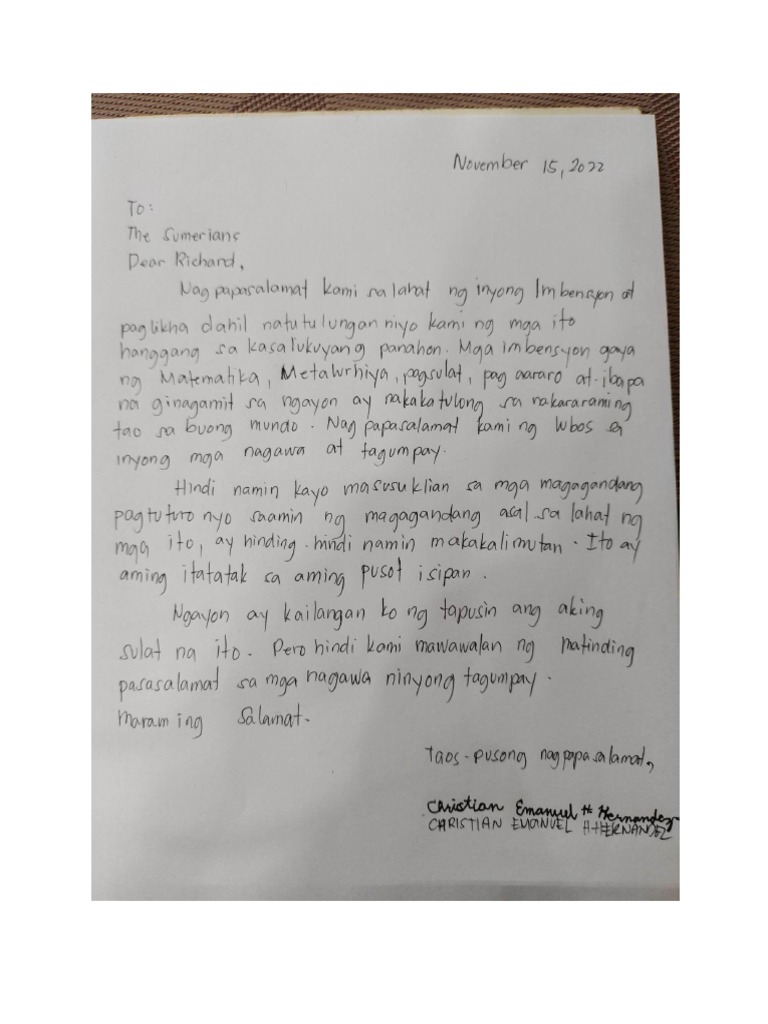 November 15, 2022
To:
The Sumerians
Dear Richard,
Nagpapasalamat kami sa lahat ng inyong Imbensyon at
paglikha dahil natutulungan niyo kami ng mga ito
hanggang sa kasalukuyang panahon. Mga imbensyon gaya
ng Matematika, Metalurhiya, pagsulat, pag aararo at ibapa
na ginagamit sa ngayon ay nakakatulong sa nakararaming
tao sa buong mundo. Nagpapasalamat kami ng lubos sa
inyong mga nagawa at tagumpay.
Hindi namin kayo masusuklian sa mga magagandang
pagtuturo nyo saamin ng magagandang asal sa lahat ng
mga ito, ay hinding-hindi namin makakalimutan. Ito ay
aming itatatak sa aming pusot isipan.
Ngayon ay kailangan ko ng tapusin ang aking
sulat na ito. Pero hindi kami mawawalan ng matinding
pasasalamat sa mga nagawa ninyong tagumpay.
maraming salamat.
Taos-pusong nagpapasalamat,
Christian Emanuel H. Hernandez
CHRISTIAN EMANUEL H. HERNANDEZ